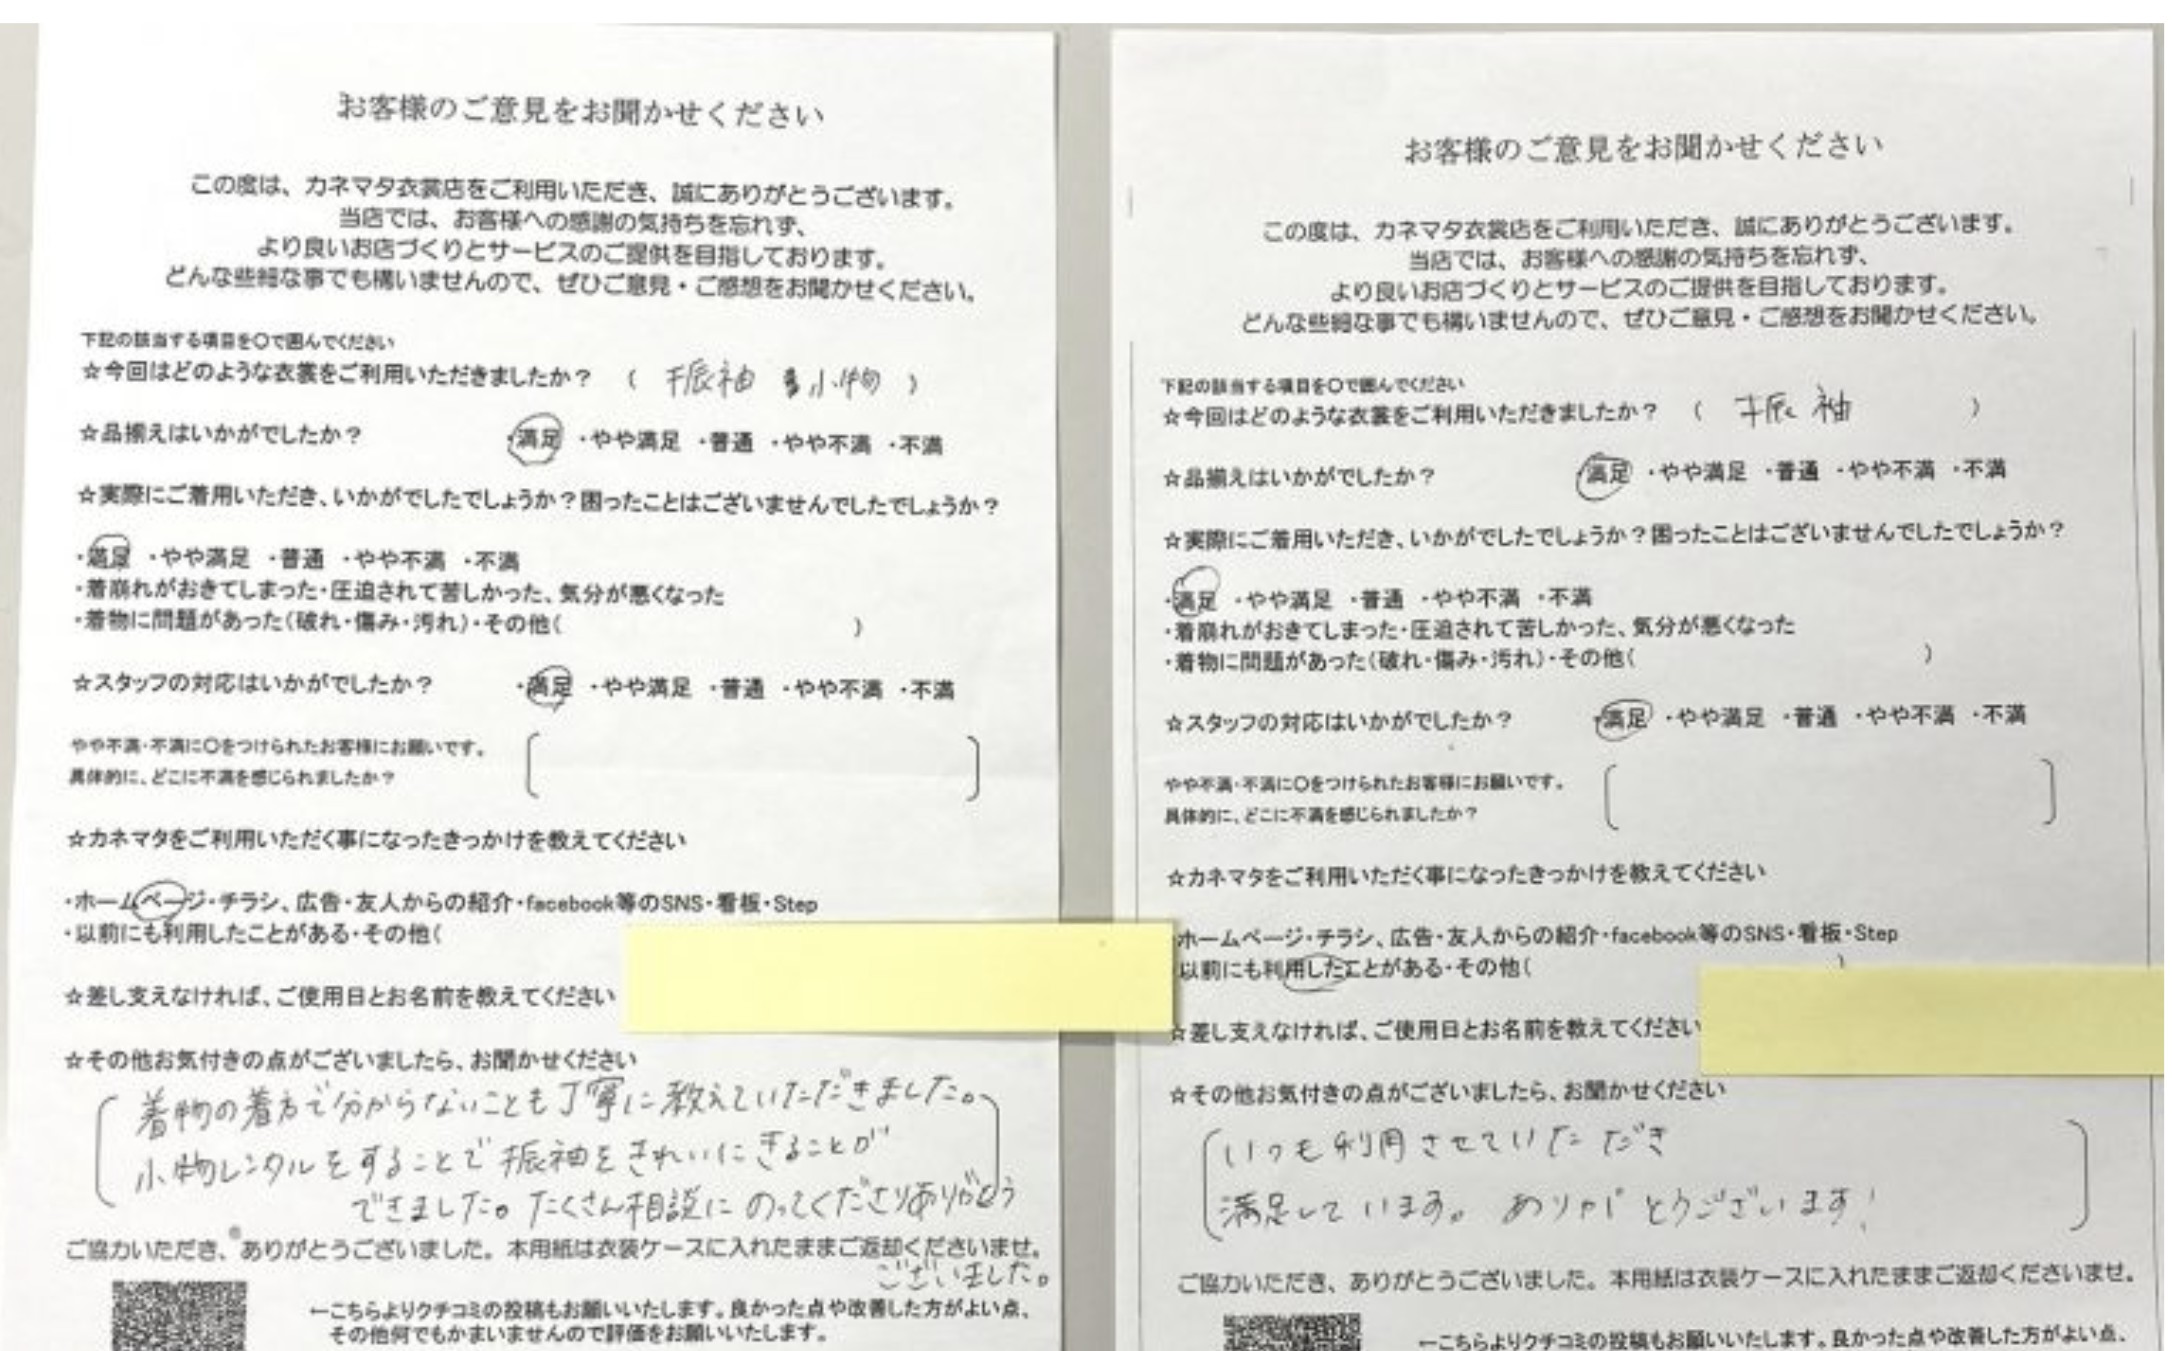 お客様のご意見をお聞かせください
この度は、カネマタ衣裳店をご利用いただき、誠にありがとうございます。
当店では、お客様への感謝の気持ちを忘れず、
より良いお店づくりとサービスのご提供を目指しております。
どんな些細な事でも構いませんので、ぜひご意見・ご感想をお聞かせください。
下記の該当する項目を〇で囲んでください
☆今回はどのような衣裳をご利用いただきましたか？ ( 振袖 小物 )
☆品揃えはいかがでしたか？ ・満足 ・やや満足 ・普通 ・やや不満 ・不満
☆実際にご着用いただき、いかがでしたでしょうか？困ったことはございませんでしたでしょうか？
・満足 ・やや満足 ・普通 ・やや不満 ・不満
・着崩れがおきてしまった・圧迫されて苦しかった、気分が悪くなった
・着物に問題があった(破れ・傷み・汚れ)・その他( )
☆スタッフの対応はいかがでしたか？ ・満足 ・やや満足 ・普通 ・やや不満 ・不満
やや不満・不満に〇をつけられたお客様にお願いです。
具体的に、どこに不満を感じられましたか？
☆カネマタをご利用いただく事になったきっかけを教えてください
・ホームページ・チラシ、広告・友人からの紹介・facebook等のSNS・看板・Step
・以前にも利用したことがある・その他(
☆差し支えなければ、ご使用日とお名前を教えてください
☆その他お気付きの点がございましたら、お聞かせください
着物の着方で分からないことも丁寧に教えていただきました。
小物レンタルをすることで振袖をきれいにきることが
できました。たくさん相談にのってくださりありがとう
ございました。
ご協力いただき、ありがとうございました。本用紙は衣装ケースに入れたままご返却くださいませ。
←こちらよりクチコミの投稿もお願いいたします。良かった点や改善した方がよい点、
その他何でもかまいませんので評価をお願いいたします。
お客様のご意見をお聞かせください
この度は、カネマタ衣裳店をご利用いただき、誠にありがとうございます。
当店では、お客様への感謝の気持ちを忘れず、
より良いお店づくりとサービスのご提供を目指しております。
どんな些細な事でも構いませんので、ぜひご意見・ご感想をお聞かせください。
下記の該当する項目を〇で囲んでください
☆今回はどのような衣裳をご利用いただきましたか？ ( 振袖 )
☆品揃えはいかがでしたか？ 満足 ・やや満足 ・普通 ・やや不満 ・不満
☆実際にご着用いただき、いかがでしたでしょうか？困ったことはございませんでしたでしょうか？
・満足 ・やや満足 ・普通 ・やや不満 ・不満
・着崩れがおきてしまった・圧迫されて苦しかった、気分が悪くなった
・着物に問題があった(破れ・傷み・汚れ)・その他( )
☆スタッフの対応はいかがでしたか？ ・満足 ・やや満足 ・普通 ・やや不満 ・不満
やや不満・不満に〇をつけられたお客様にお願いです。
具体的に、どこに不満を感じられましたか？
☆カネマタをご利用いただく事になったきっかけを教えてください
ホームページ・チラシ、広告・友人からの紹介・facebook等のSNS・看板・Step
以前にも利用したことがある・その他( )
☆差し支えなければ、ご使用日とお名前を教えてください
☆その他お気付きの点がございましたら、お聞かせください
いつも利用させていただき
満足しています。ありがとうございます！
ご協力いただき、ありがとうございました。本用紙は衣装ケースに入れたままご返却くださいませ。
←こちらよりクチコミの投稿もお願いいたします。良かった点や改善した方がよい点、